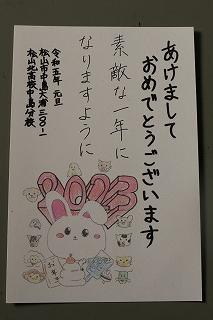 あけまして
おめでとうございます
素敵な一年に
なりますように
令和五年 元旦
松山市中島大浦三〇八一-一
松山北高校中島分校
2023
お年玉